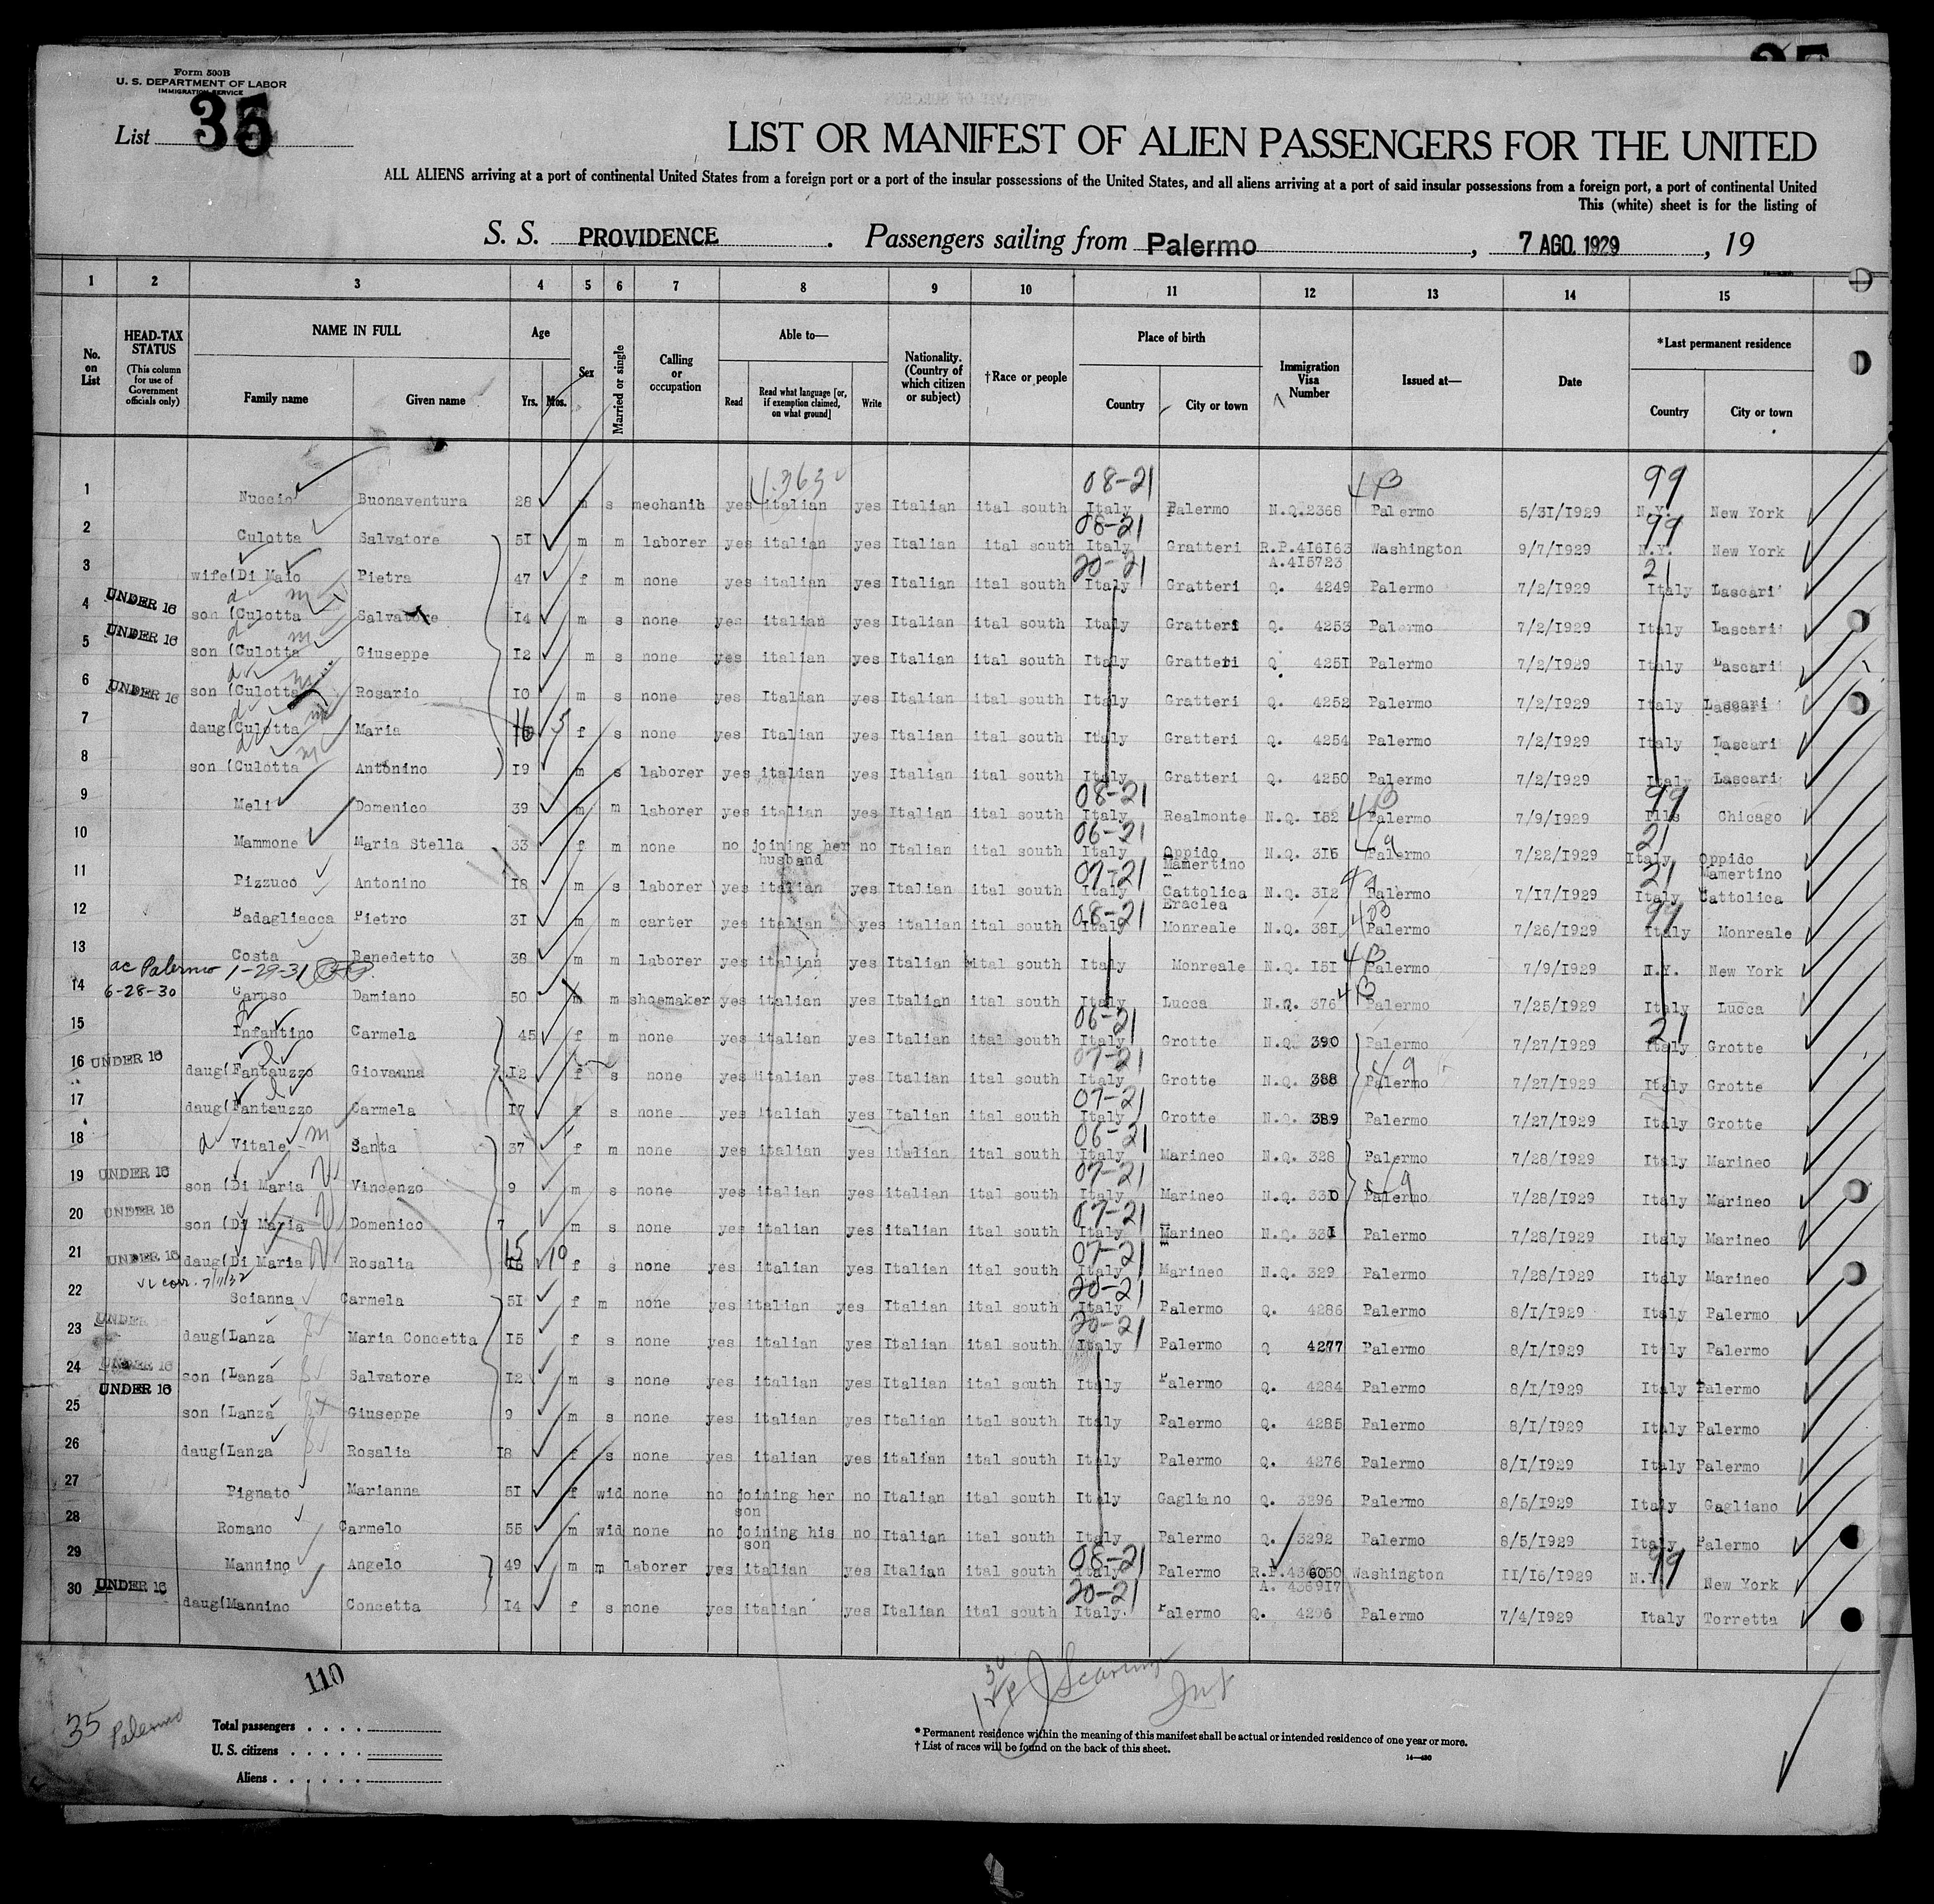 Form 500B
U. S. DEPARTMENT OF LABOR
IMMIGRATION SERVICE
List 35
LIST OR MANIFEST OF ALIEN PASSENGERS FOR THE UNITED
ALL ALIENS arriving at a port of continental United States from a foreign port or a port of the insular possessions of the United States, and all aliens arriving at a port of said insular possessions from a foreign port, a port of continental United
This (white) sheet is for the listing of
S. S. PROVIDENCE. Passengers sailing from Palermo, 7 AGO. 1929, 19
1 2 3 4 5 6 7 8 9 10 11 12 13 14 15
No. on List HEAD-TAX STATUS (This column for use of Government officials only) NAME IN FULL Family name Given name Age Yrs. Mos. Sex Married or single Calling or occupation Able to— Read Read what language [or, if exemption claimed, on what ground] Write Nationality. (Country of which citizen or subject) †Race or people Place of birth Country City or town Immigration Visa Number Issued at— Date *Last permanent residence Country City or town
4.363 08-21 4B 99
1 Nuccio Buonaventura 28 m s mechanih yes italian yes Italian ital south Italy Palermo N.Q.2368 Palermo 5/31/1929 N.Y. New York
08-21 99
2 Culotta Salvatore 51 m m laborer yes italian yes Italian ital south Italy Gratteri R.P.416163 A.415723 Washington 9/7/1929 N.Y. New York
20-21 21
3 wife(Di Maio Pietra 47 f m none yes italian yes Italian ital south Italy Gratteri Q. 4249 Palermo 7/2/1929 Italy Lascari
4 UNDER 16 son (Culotta Salvatore 14 m s none yes italian yes Italian ital south Italy Gratteri Q. 4253 Palermo 7/2/1929 Italy Lascari
5 UNDER 16 son (Culotta Giuseppe 12 m s none yes italian yes Italian ital south Italy Gratteri Q 4251 Palermo 7/2/1929 Italy Lascari
6 UNDER 16 son (Culotta Rosario 10 m s none yes Italian yes Italian ital south Italy Gratteri Q. 4252 Palermo 7/2/1929 Italy Lascari
7 daug(Culotta Maria 16 5 f s none yes Italian yes Italian ital south Italy Gratteri Q. 4254 Palermo 7/2/1929 Italy Lascari
8 son (Culotta Antonino 19 m s laborer yes italian yes Italian ital south Italy Gratteri Q. 4250 Palermo 7/2/1929 Italy Lascari
08-21 4B 99
9 Meli Domenico 39 m m laborer yes italian yes Italian ital south Italy Realmonte N.Q. 152 Palermo 7/9/1929 Ills Chicago
06-21 49 21
10 Mammone Maria Stella 33 f m none no joining her husband no Italian ital south Italy Oppido Mamertino N.Q. 315 Palermo 7/22/1929 Italy Oppido Mamertino
07-21 49 21
11 Pizzuco Antonino 18 m s laborer yes italian yes Italian ital south Italy Cattolica Eraclea N.Q. 312 Palermo 7/17/1929 Italy Cattolica
08-21 4B 99
12 Badagliacca Pietro 31 m m carter yes italian yes italian ital south Italy Monreale N.Q. 381 Palermo 7/26/1929 Italy Monreale
13 Costa Benedetto 38 m m laborer yes italian yes Italian ital south Italy Monreale N.Q. 151 4B Palermo 7/9/1929 N.Y. New York
ac Palermo 1-29-31
6-28-30
14 Caruso Damiano 50 m m shoemaker yes italian yes Italian ital south Italy Lucca N.Q. 376 4B Palermo 7/25/1929 Italy Lucca
06-21 21
15 Infantino Carmela 45 f m none yes italian yes Italian ital south Italy Grotte N.Q 390 Palermo 7/27/1929 Italy Grotte
07-21 49
16 UNDER 16 daug(Fantauzzo Giovanna 12 f s none yes italian yes Italian ital south Italy Grotte N.Q. 388 Palermo 7/27/1929 Italy Grotte
07-21
17 daug(Fantauzzo Carmela 17 f s none yes italian yes Italian ital south Italy Grotte N.Q. 389 Palermo 7/27/1929 Italy Grotte
06-21
18 Vitale Santa 37 f m none yes italian yes italian ital south Italy Marineo N.Q. 328 Palermo 7/28/1929 Italy Marineo
07-21 49
19 UNDER 16 son (Di Maria Vincenzo 9 m s none yes italian yes italian ital south Italy Marineo N.Q. 330 Palermo 7/28/1929 Italy Marineo
07-21
20 UNDER 16 son (Di Maria Domenico 7 m s none yes italian yes italian ital south Italy Marineo N.Q. 331 Palermo 7/28/1929 Italy Marineo
07-21
21 UNDER 16 daug(Di Maria Rosalia 15 10 f s none yes italian yes Italian ital south Italy Marineo N.Q. 329 Palermo 7/28/1929 Italy Marineo
20-21
22 Scianna Carmela 51 f m none yes italian yes Italian ital south Italy Palermo Q. 4286 Palermo 8/1/1929 Italy Palermo
20-21
23 UNDER 16 daug(Lanza Maria Concetta 15 f s none yes italian yes Italian ital south Italy Palermo Q 4277 Palermo 8/1/1929 Italy Palermo
24 UNDER 16 son (Lanza Salvatore 12 m s none yes italian yes Italian ital south Italy Palermo Q. 4284 Palermo 8/1/1929 Italy Palermo
25 UNDER 16 son (Lanza Giuseppe 9 m s none yes italian yes Italian ital south Italy Palermo Q. 4285 Palermo 8/1/1929 Italy Palermo
26 daug(Lanza Rosalia 18 f s none yes italian yes italian ital south Italy Palermo Q. 4276 Palermo 8/1/1929 Italy Palermo
27 Pignato Marianna 51 f wid none no joining her son no Italian ital south Italy Gagliano Q. 3296 Palermo 8/5/1929 Italy Gagliano
28 Romano Carmelo 55 m wid none no joining his son no Italian ital south Italy Palermo Q. 3292 Palermo 8/5/1929 Italy Palermo
08-21 99
29 Mannino Angelo 49 m m laborer yes italian yes Italian ital south Italy Palermo R.P.436050 A. 436917 Washington 11/15/1929 N.Y. New York
20-21
30 UNDER 16 daug(Mannino Concetta 14 f s none yes italian yes Italian ital south Italy Palermo Q. 4296 Palermo 7/4/1929 Italy Torretta
110
35 Palermo
Total passengers
U. S. citizens
Aliens
* Permanent residence within the meaning of this manifest shall be actual or intended residence of one year or more.
† List of races will be found on the back of this sheet.